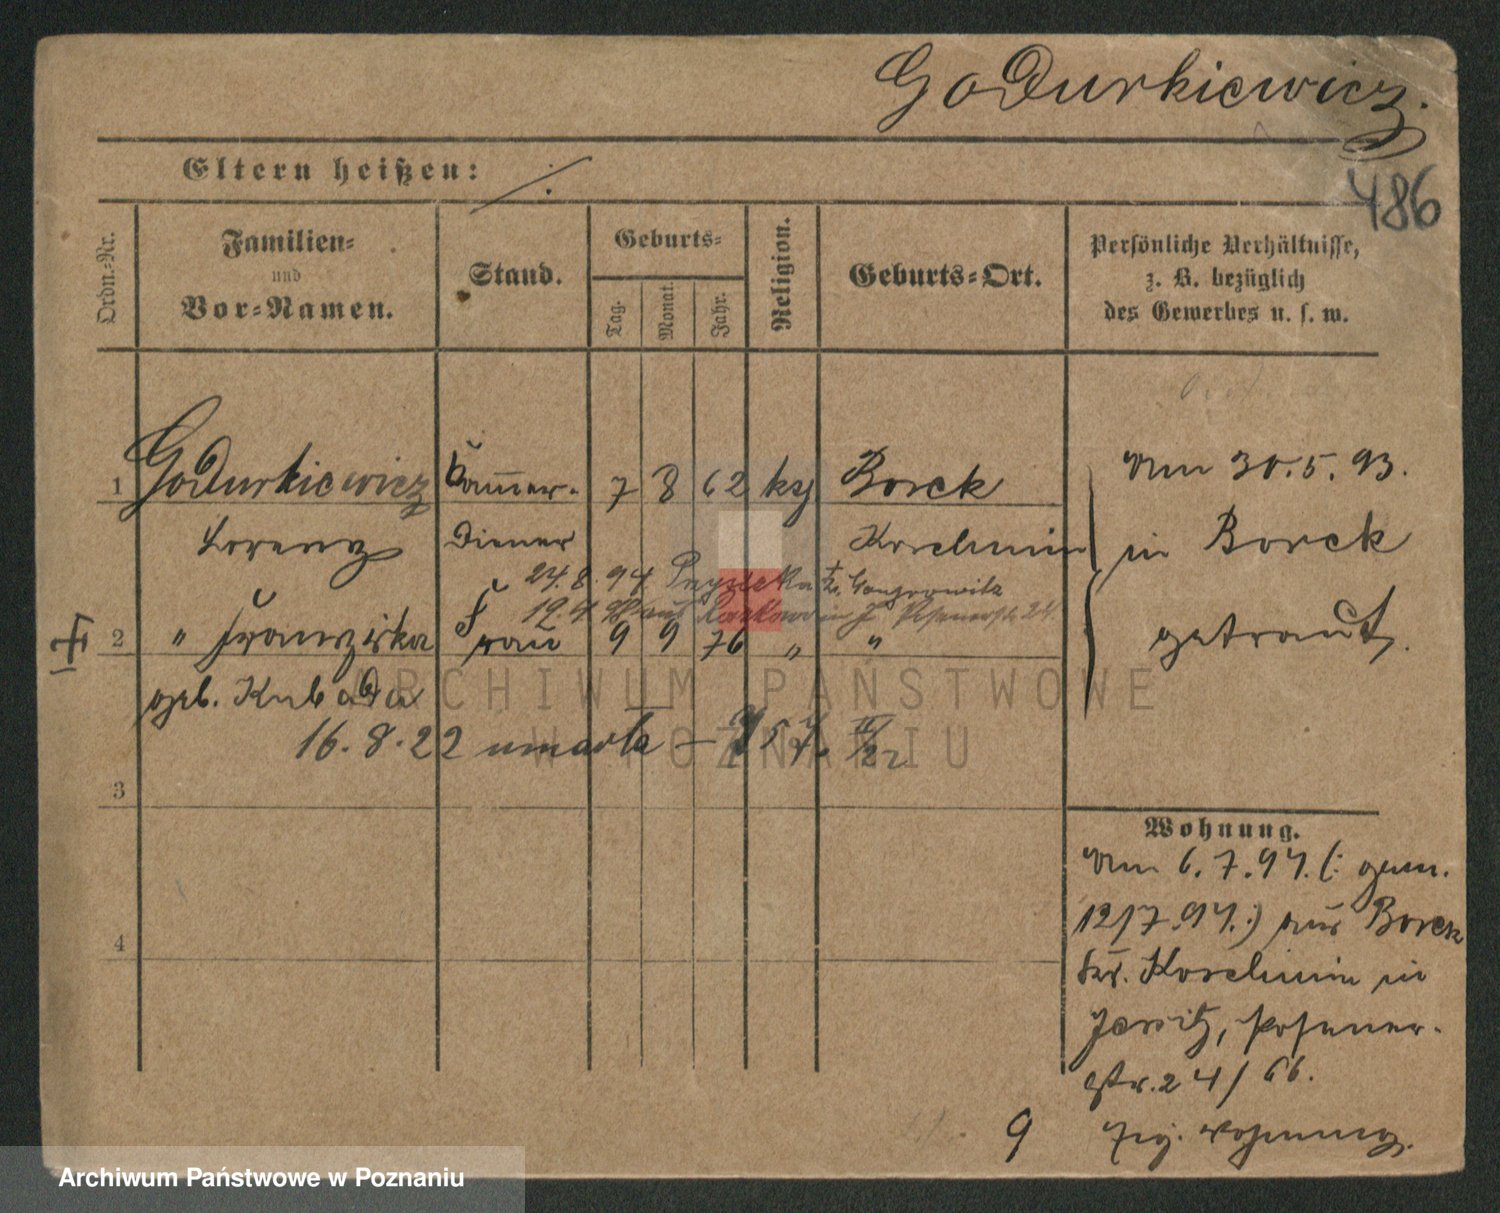 Godurkiewicz.
486
Eltern heißen: ./.
Ordn.-Nr.
Familien-
und
Vor-Namen.
Stand.
Geburts-
Tag.
Monat.
Jahr.
Religion.
Geburts-Ort.
Persönliche Verhältnisse,
z. B. bezüglich
des Gewerbes u. s. w.
1 Godurkiewicz Kammer- 7 8 62 kth Borck
Lorenz Diener Koschmin
24.8.94
2 " Franziska Frau 9 9 76 " "
geb. Kubala
16.8.22 umarla
am 30.5.93.
in Borck
getraut.
3
4
Wohnung.
am 6.7.94. (: gem.
12/7.94.:) aus Borck
Kr. Koschmin in
Jersitz, Posener-
str. 24/66.
9 Wohnung.
ARCHIWUM PAŃSTWOWE
W POZNANIU
Archiwum Państwowe w Poznaniu